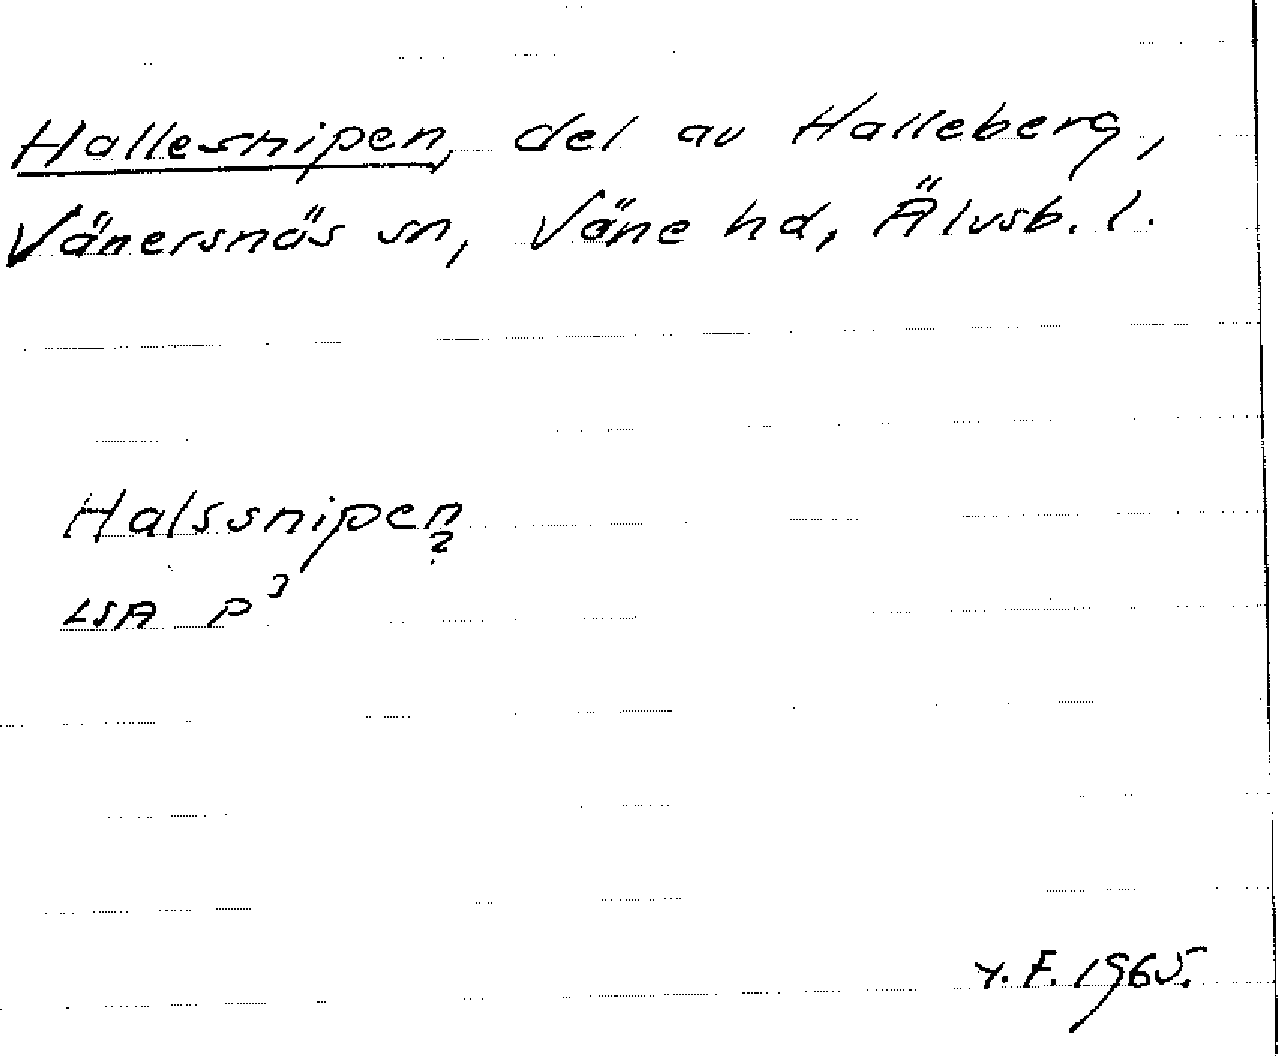 Hallesnipen, del av Halleberg,
Vänersnäs sn, Väne hd, Älvsb. l.
Halssnipen
?
LSA P3
Y.F. 1965.